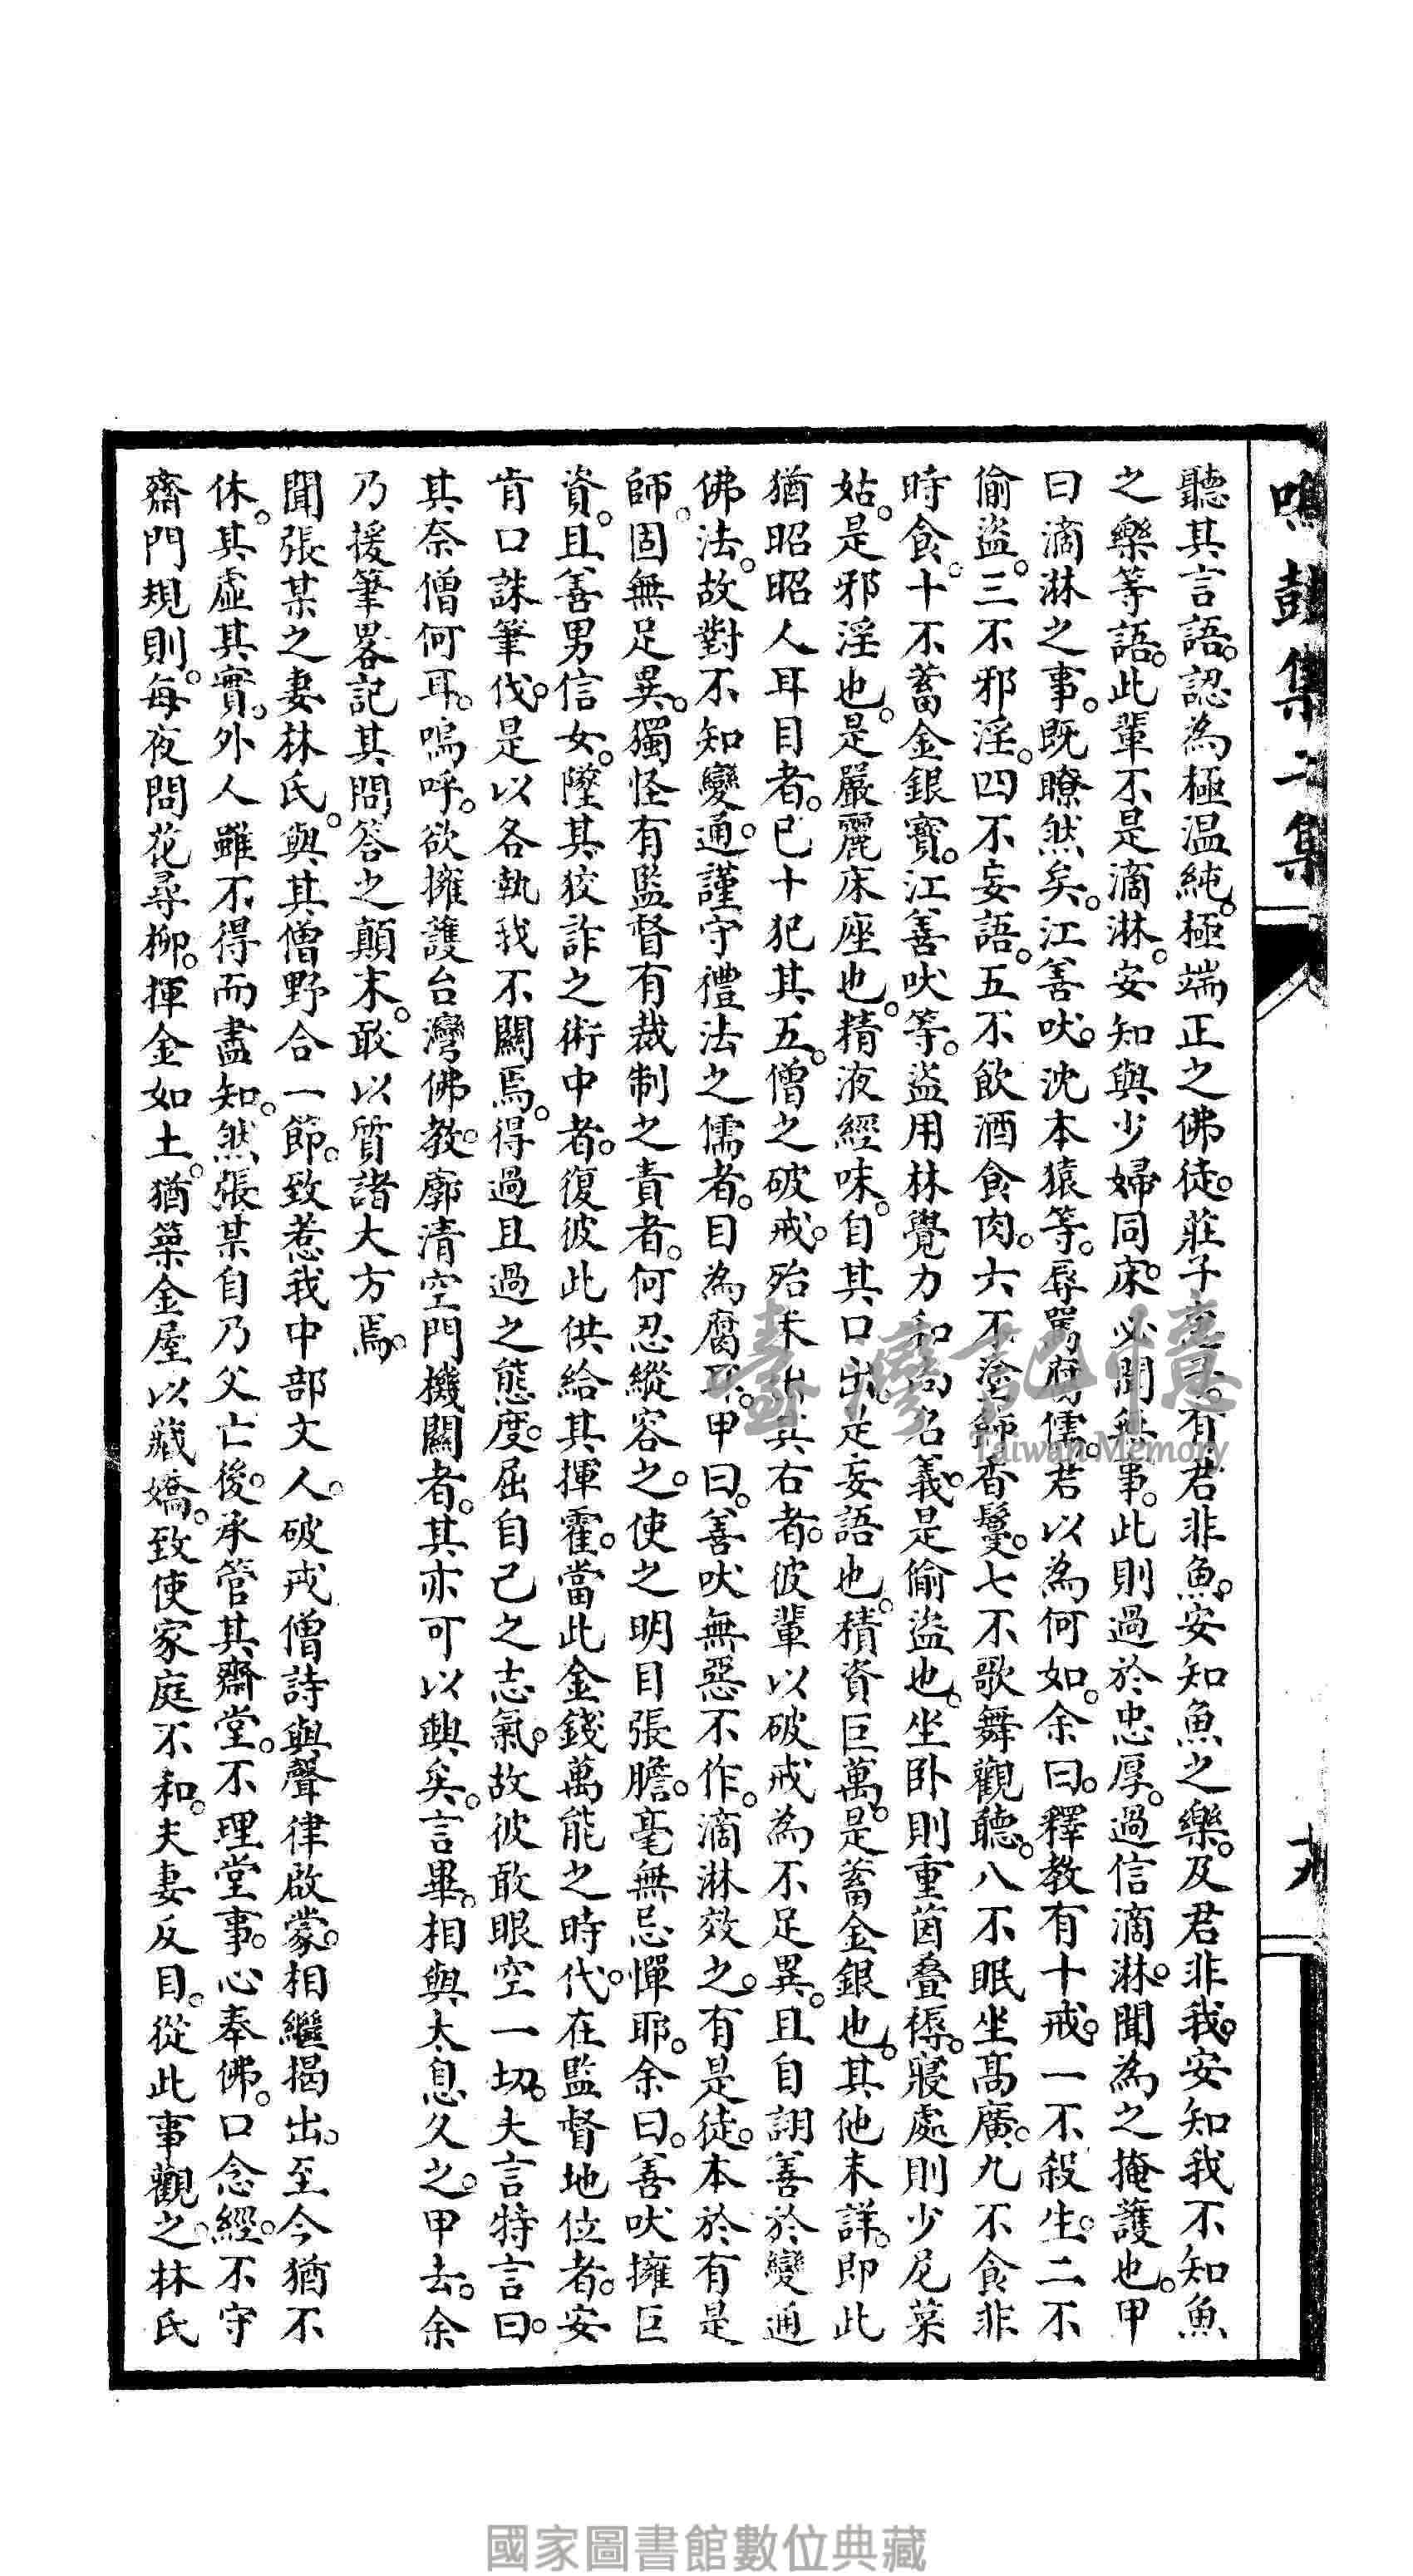 聽其言語。認為極温純。極端正之佛徒。莊子有君非魚。安知魚之樂。及君非我。安知我不知魚
之樂等語。此輩不是滴淋。安知與少婦同床。必聞無事。此則過於忠厚。過信滴淋。聞為之掩護也。甲
曰滴淋之事。既瞭然矣。江善吠。沈本猿等。辱罵腐儒。君以為何如。余曰。釋教有十戒。一不殺生。二不
偷盜。三不邪淫。四不妄語。五不飲酒食肉。六不塗飾香鬘。七不歌舞觀聽。八不眠坐高廣。九不食非
時食。十不蓄金銀寶。江善吠等。盜用林覺力和尚名義。是偷盜也。坐卧則重茵叠褥。寢處則少尼菜
姑。是邪淫也。是嚴麗床座也。精液經味。自其口出。是妄語也。積資巨萬。是蓄金銀也。其他未詳。即此
猶昭昭人耳目者。已十犯其五。僧之破戒。殆未出其右者。彼輩以破戒為不足異。且自詡善於變通
佛法。故對不知變通。謹守禮法之儒者。目為腐耳。甲曰。善吠無惡不作。滴淋效之。有是徒。本於有是
師。固無足異。獨怪有監督有裁制之責者。何忍縱容之。使之明目張膽。毫無忌憚耶。余曰。善吠擁巨
資。且善男信女。墜其狡詐之術中者。復彼此供給其揮霍。當此金錢萬能之時代。在監督地位者。安
肯口誅筆伐。是以各執我不關焉。得過且過之態度。屈自己之志氣。故彼敢眼空一切。夫言特言曰。
其奈僧何耳。嗚呼。欲擁護台灣佛教。廓清空門機關者。其亦可以興矣。言畢。相與太息久之。甲去。余
乃援筆畧記其問答之顛末。敢以質諸大方焉。
聞張某之妻林氏。與其僧野合一節。致惹我中部文人。破戒僧詩與聲律啟蒙。相繼揭出。至今猶不
休。其虛其實。外人雖不得而盡知。然張某自乃父亡後。承管其齋堂。不理堂事。心奉佛。口念經。不守
齋門規則。每夜問花尋柳。揮金如土。猶築金屋以藏嬌。致使家庭不和。夫妻反目。從此事觀之。林氏
鳴鼓集二集
十九
臺灣記憶
Taiwan Memory
國家圖書館數位典藏